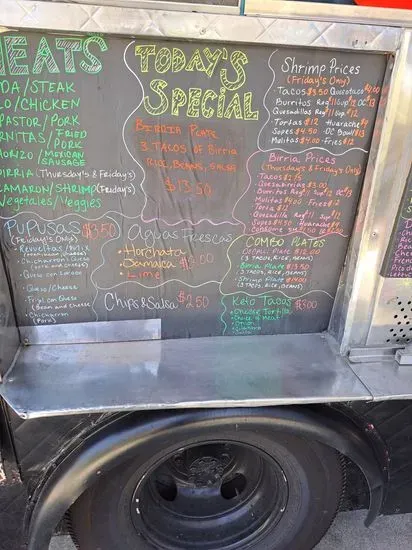 EATS
DA/STEAK
LO/CHICKEN
PASTOR/PORK
RNITAS/FRIED PORK
HORIZO/MEXICAN SAUSAGE
BIRRIA (Thursday's & Fridays)
CAMARON/SHRIMP (Fridays)
Vegetales/Veggies
PUPUSAS $3.50
(Friday's Only)
Revueltas/Mix
Chicharron Queso
Queso con
Queso/Cheese
Frijol con Queso
(Bean and Cheese)
Chicharron
(Pork)
TODAY'S
SPECIAL
BIRRIA PLATE
3 TACOS OF BIRRIA
RICE, BEANS, SALSA
$13.50
Aguas Frescas
Horchata
Jamaica $3.00
Lime
Chips & Salsa $2.50
Shrimp Prices
(Friday's Only)
Tacos $3.50 Quesotaco
Burritos Reg $11 Sup $12
Quesadillas Reg $11 Sup $12
Tortas $12 Huarache
Sopes $4.50 Bowl $13
Mulitas $4.00 Fries $12
Birria Prices
(Thursday's & Fridays Only)
Tacos
Quesabirrias
Burritos Reg $11 Sup $12
Mulitas $4.00 Fries
Torta $12
Quesadilla Reg $11 Sup
Sopes
Consome
COMBO PLATES
Plate $12.00
(3 TACOS, RICE, BEANS)
Birria Plate $13.50
(3 TACOS, RICE, BEANS)
Shrimp Plate $14.00
(3 TACOS, RICE, BEANS)
Keto Tacos $3.00
Cheese Tortilla
Choice of Meat
Onion
Cilantro